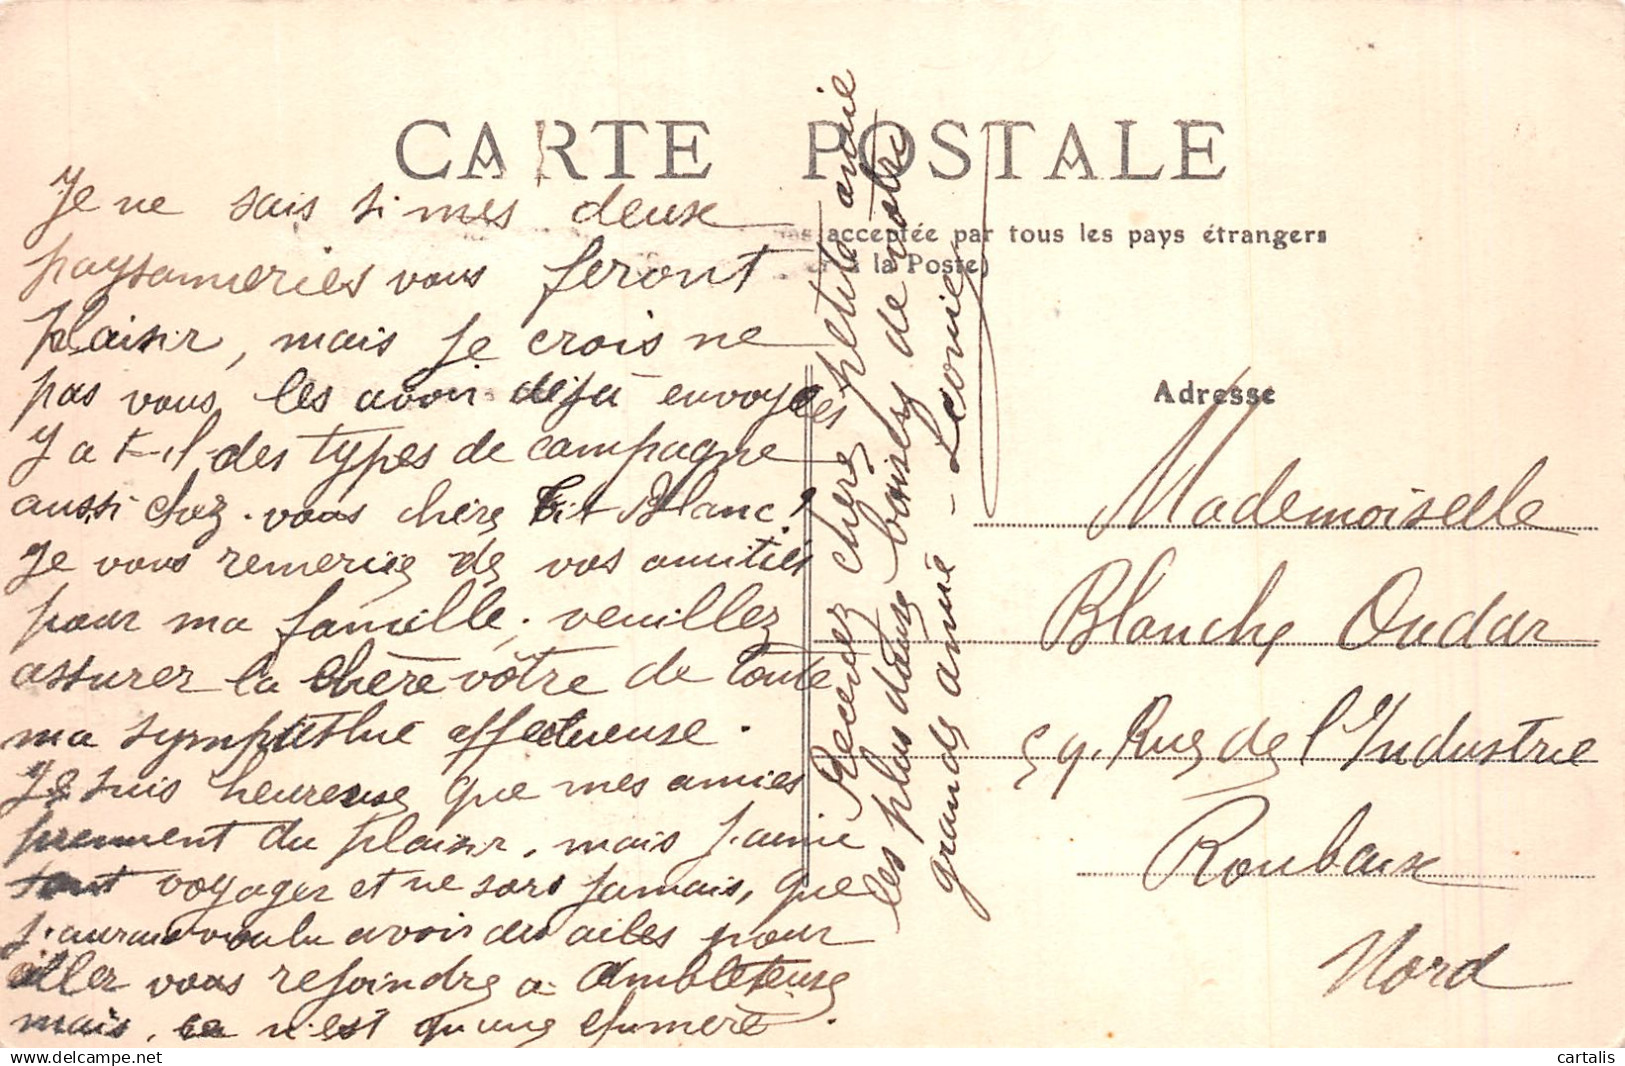 CARTE POSTALE
acceptée par tous les pays étrangers
à la Poste)
Je ne sais si mes deux
paysanneries vous feront
plaisir, mais je crois ne
pas vous les avoir déjà envoyées
Y a t-il des types de campagne
aussi chez vous chère Tit Blanc?
Je vous remercie de vos amitiés
pour ma famille, veuillez
assurer la chère vôtre de toute
ma sympathie affectueuse.
Je suis heureuse que mes amies
prennent du plaisir, mais j'aime
tant voyager et ne sors jamais, que
j'aurais voulu avoir des ailes pour
aller vous rejoindre à Ambleteuse
mais, ce n'est qu'une
Recevez chère petite amie
les plus doux baisers de votre
grande amie - Léonie
Adresse
Mademoiselle
Blanche Oudar
59. Rue de l'Industrie
Roubaix
Nord
cartalis